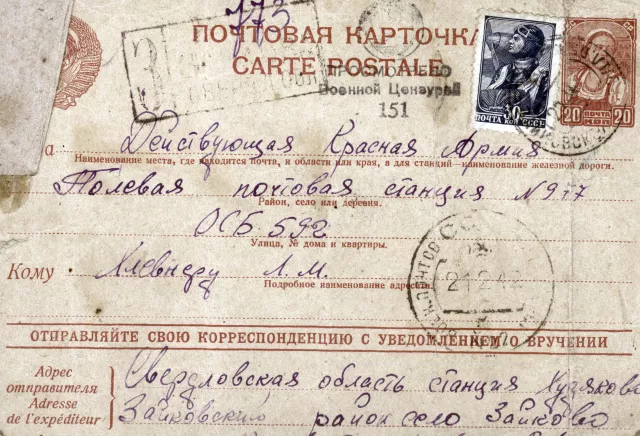 773
ПОЧТОВАЯ КАРТОЧКА
CARTE POSTALE
ПРОСМОТРЕНО
Военной Цензурой
151
30
ПОЧТА СССР
20 ПОЧТА 20
Действующая Красная Армия
Наименование места, где находится почта, и области или края, а для станций—наименование железной дороги.
Полевая почтовая станция N 977
Район, село или деревня.
ОСБ 592
Улица, № дома и квартиры.
Кому Хлевнеру Л. М.
Подробное наименование адресата
21 2 42
ОТПРАВЛЯЙТЕ СВОЮ КОРРЕСПОНДЕНЦИЮ С УВЕДОМЛЕНИЕМ О ВРУЧЕНИИ
Адрес отправителя
Adresse de l'expéditeur
Свердловская область станция Худяково
Зайковский район село Зайково